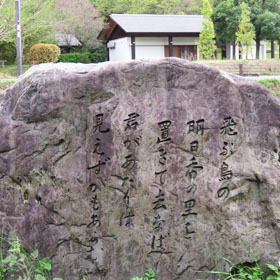 飛ぶ鳥の
明日香の里を
置きて去なば
君があたりは
見えずかもあらむ